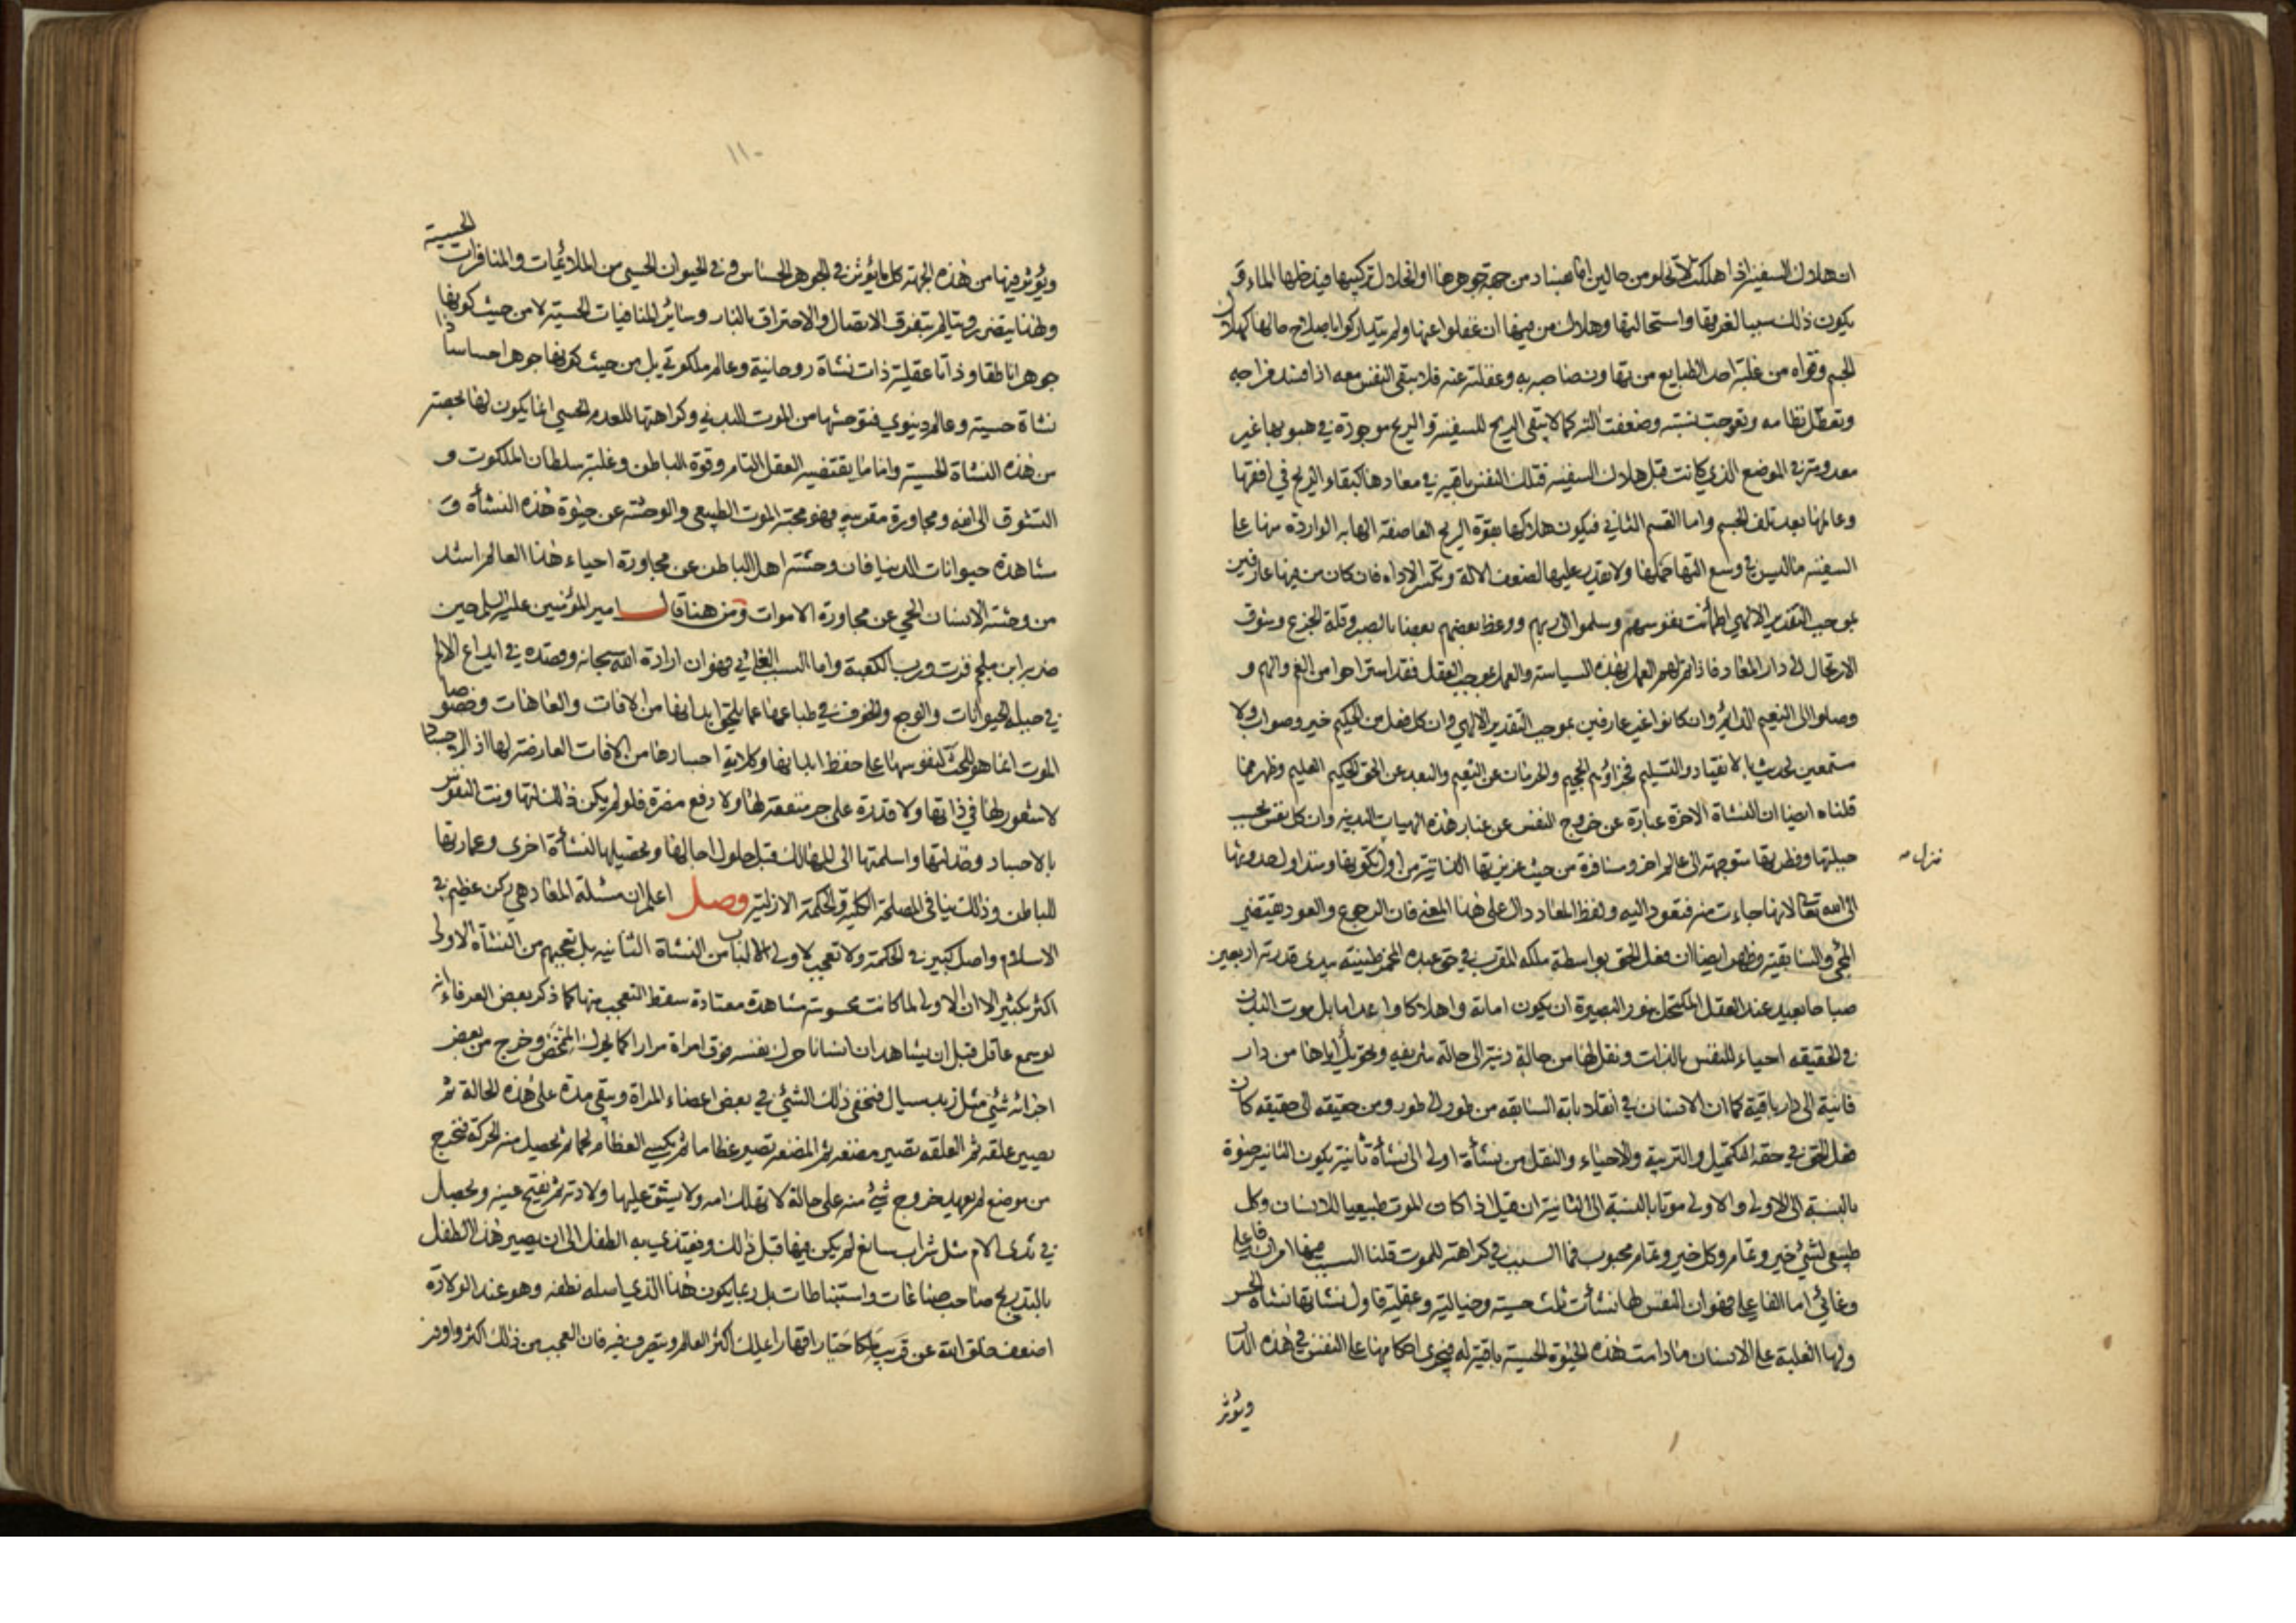 ان هلاك السفينة اذا هلكت لا تخلو من حالين اما بفساد من جهة جوهرها او انحلال تركيبها فيدخلها الماء و
يكون ذلك سببا لغرقها واستحالتها وهلاك من فيها ان غفلوا عنها ولم يتداركوا باصلاح حالها كهلاك
الجسم وقواه من غلبة احد الطبايع من تهاون صاحبه به وغفلته عنه فلا يبقى النفس معه اذا فسد مزاجه
وتعطل نظامه وتعوجت نسبته وضعفت آلته كما لا يبقى الريح للسفينة والريح موجودة في هبوبها غير
معدومة في الموضع الذي كانت قبل هلاك السفينة فتلك النفس باقية في معادها كبقاء الريح في افقها
وعالمها بعد تلف الجسم واما القسم الثاني فيكون هلاكها بقوة الريح العاصفة الهابة الواردة منها على
السفينة ما ليس في وسع آلتها حملها ولا تقدر عليها لضعف الآلة وتكسر الاداة فان كان من فيها عارفين
بموجب التقدير الالهي اطمأنت نفوسهم وسلموا الى ربهم ووعظ بعضهم بعضا بالصبر وقلة الجزع وشوق
الارتحال الى دار المعاد فاذا تم لهم العمل بهذه السياسة والعمل بموجب العقل فقد استراحوا من الغم والهم و
وصلوا الى النعيم الدائم وان كانوا غير عارفين بموجب التقدير الالهي وان كل فعل من الحكيم خير وصواب ولا
مستمعين لحديث الانقياد والتسليم فجزاؤهم الجحيم والحرمان عن النعيم والبعد عن الحق الحكيم العليم وظهر مما
قلناه ايضا ان النشاة الاخرة عبارة عن خروج النفس عن غبار هذه الهيات البدنية وان كل نفس بحسب
جبلتها وفطرتها متوجهة الى عالم اخر ومسافرة من حيث غريزتها الذاتية من اول تكونها ومبدا اول حدوثها
تنزل
الى الله تعالى لانها جاءت منه فتعود اليه ولفظ المعاد دال على هذا المعنى فان الرجوع والعود يقتضي
المجئ والسابقية وظهر ايضا ان فعل الحق بواسطة ملكه المقرب في حق عبده المخمر طينته بيدي قدرته اربعين
صباحا بعيد عند العقل المكتحل بنور البصيرة ان يكون اماتة واهلاكا واعداما بل موت البدن
في الحقيقه احياء للنفس بالذات ونقل لها من حالة دنية الى حالة شريفه وتحويل اياها من دار
فانية الى دار باقية كما ان الانسان في انقلاباته السابقه من طور الى طور ومن حقيقه الى حقيقه كان
فعل الحق في حقه التكميل والتربية والاحياء والنقل من نشأة اولى الى نشأة ثانية يكون الثانية حيوة
بالنسبة الى الاولى والاولى موتا بالنسبة الى الثانية ان قيل اذا كان الموت طبيعيا للانسان وكل
طبيعي لشئ خير وتمام وكل خير وتمام محبوب فما السبب في كراهته للموت قلنا السبب فيها امران فاعلي
وغائي اما الفاعلي فهو ان النفس لها نشآت ثلث حسية وخيالية وعقلية فاول نشاتها نشاة الحس
ولها الغلبة على الانسان ما دامت هذه الحيوة الحسية باقية له فيجري احكامها على النفس في هذه الدنيا
ويؤثر
١١٠
ويؤثر فيها من هذه الجهة كل ما يؤثر في الجوهر الحساس وفي الحيوان الحسي من الملائمات والمنافرات الحسية
ولهذا يتضرر ويتالم بتفرق الاتصال والاحتراق بالنار وسائر المنافيات الحسية لا من حيث كونها
جوهرا ناطقا وذاتا عقلية ذات نشاة روحانية وعالم ملكوتي بل من حيث كونها جوهرا حساسا ذا
نشاة حسية وعالم دنيوي فتوحشها من الموت البدني وكراهتها للعدم الحسي انما يكون لها بحصته
من هذه النشاة الحسية واما ما يقتضيه العقل التام وقوة الباطن وغلبة سلطان الملكوت و
التشوق الى الله ومجاورة مقدسيه فهو محبة الموت الطبيعي والوحشة عن حيوة هذه النشأة و
مشاهدة حيوانات الدنيا فان وحشة اهل الباطن عن مجاورة احياء هذا العالم اشد
من وحشة الانسان الحي عن مجاورة الاموات ومن هنا قال امير المؤمنين عليه السلم حين
ضربه ابن ملجم فزت ورب الكعبة واما السبب الغائي فهو ان ارادة الله سبحانه وقصده في ايداع الالم
في جبلة الحيوانات والوجع والخوف في طباعها عما يلحق ابدانها من الافات والعاهات وخصوصا
الموت انما هو للحث لنفوسها على حفظ ابدانها وكلاية اجسادها من الافات العارضة لها اذ الاجساد
لا شعور لها في ذاتها ولا قدرة على جر منفعة لها ولا دفع مضرة فلو لم يكن ذلك لتهاونت النفوس
بالاجساد وخذلتها واسلمتها الى المهالك قبل حلول اجالها وتحصيلها النشأة اخرى وعمارتها
للباطن وذلك ينافي المصلحة الكلية والحكمة الازلية وصل اعلم ان مسئلة المعاد هي ركن عظيم في
الاسلام واصل كبير في الحكمة ولا تعجب لاولي الالباب من النشاة الثانيه بل تعجبهم من النشأة الاولى
اكثر بكثير الا ان الاولى لما كانت محسوسة مشاهدة معتادة سقط التعجب منها كما ذكر بعض العرفاء انه
لو سمع عاقل قبل ان يشاهد ان انسانا حرك نفسه فوق امراة مرارا كما يحرك الممخض وخرج من بعض
اجزائه شئ مثل زبد سيال فتخفى ذلك الشئ في بعض اعضاء المراة ويبقى مدة على هذه الحالة ثم
يصير علقه ثم العلقه تصير مضغه ثم المضغه تصير عظاما ثم يكسى العظام لحما ثم تحصل منه الحركة فتخرج
من موضع لم يعهد خروج شئ منه على حالة لا تهلك امه ولا يشق عليها ولادته ثم يفتح عينه ويحصل
في ثدى الام مثل شراب سائغ لم يكن فيها قبل ذلك ويغتذي به الطفل الى ان يصير هذا الطفل
بالتدريج صاحب صناعات واستنباطات بل ربما يكون هذا الذي اصله نطفه وهو عند الولادة
اضعف خلق الله عن قريب ملكا جبارا قهارا يملك اكثر العالم ويتصرف فيه فان العجب من ذلك اكثر واوفر